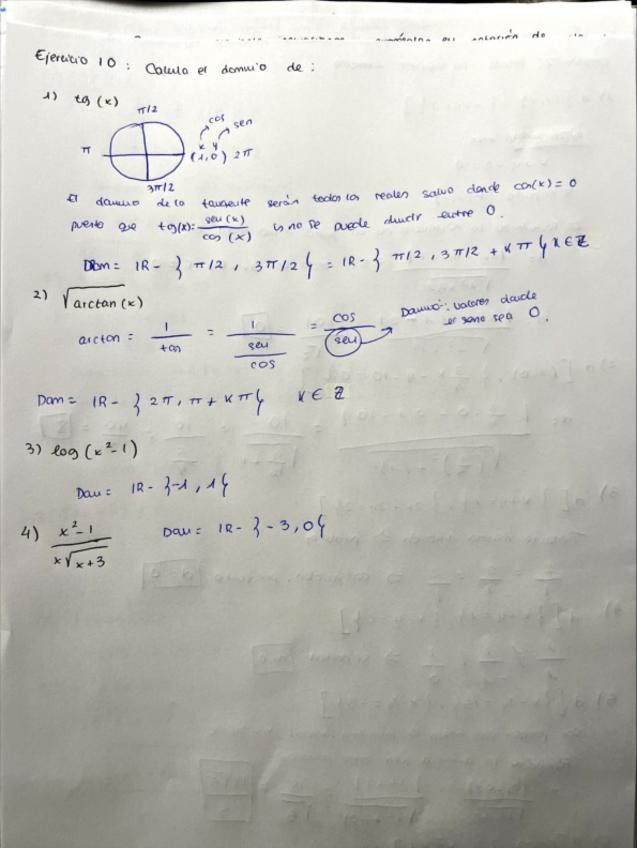 Ejercicio 10: Calcula el dominio de:
1) tg(x)
π/2
cos
sen
x y
π (1,0) 2π
3π/2
El dominio de la tangente serán todos los reales salvo donde cos(x)=0
puesto que tg(x)= sen(x)/cos(x) y no se puede dividir entre 0.
Dom= IR - } π/2, 3π/2 { = IR - } π/2, 3π/2 + Kπ { K∈Z
2) √arctan(x)
arctan = 1/tan = 1/(sen/cos) = cos/sen
Dominio: valores donde
el seno sea 0.
Dom= IR - } 2π, π + Kπ { K∈Z
3) log(x²-1)
Dom= IR - }-1, 1{
4) x²-1/x√x+3 Dom= IR - }-3, 0{